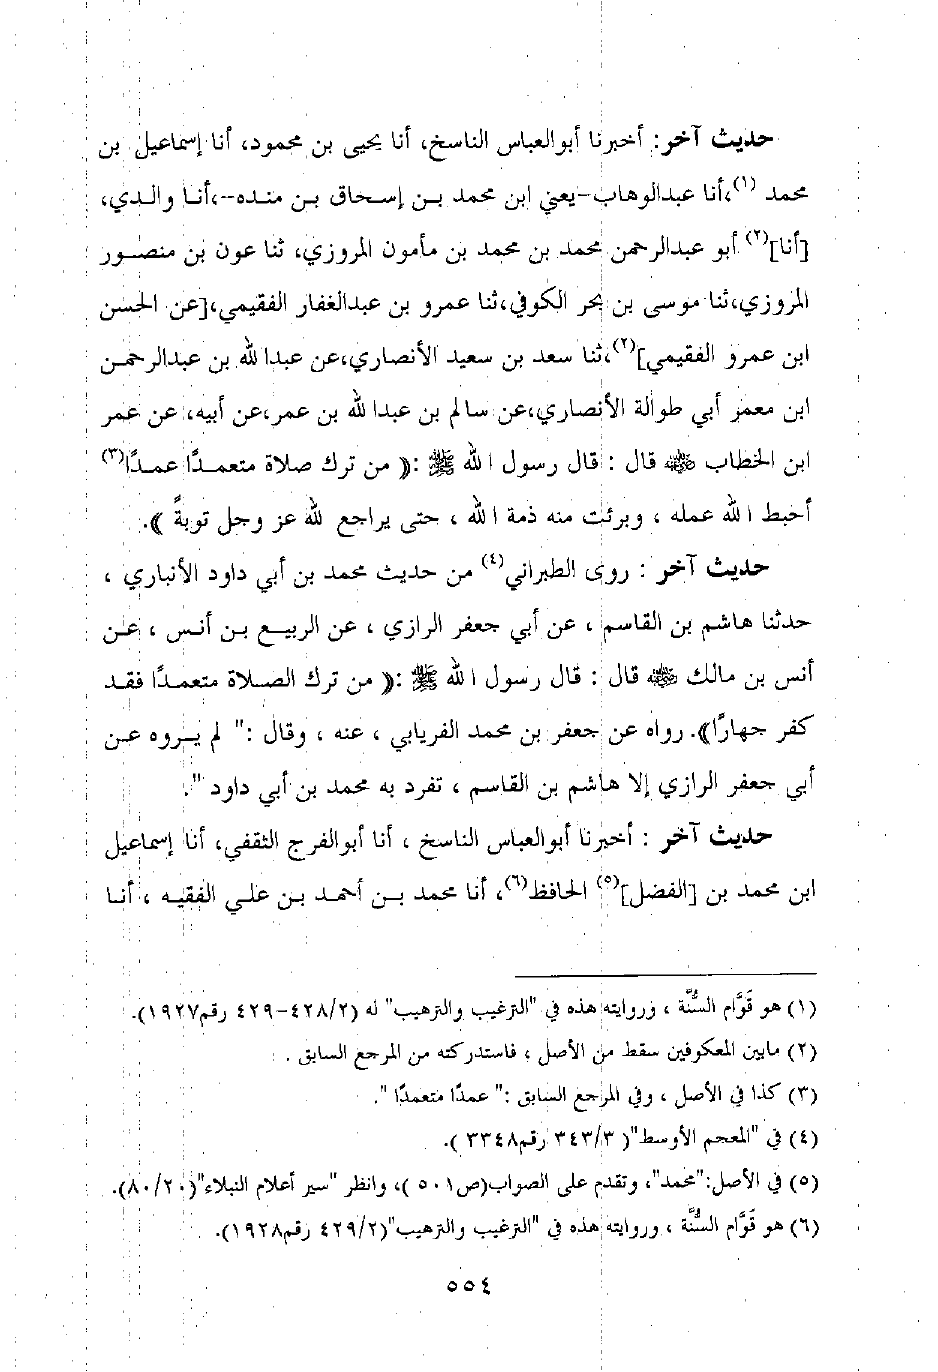 حديث آخر: أخبرنا أبوالعباس الناسخ، أنا يحيى بن محمود، أنا إسماعيل بن
محمد (١)،أنا عبدالوهاب-يعني ابن محمد بن إسحاق بن منده--،أنا والدي،
[أنا](٢) أبو عبدالرحمن محمد بن محمد بن مأمون المروزي، ثنا عون بن منصور
المروزي،ثنا موسى بن بحر الكوفي،ثنا عمرو بن عبدالغفار الفقيمي،[عن الحسن
ابن عمرو الفقيمي](٢)،ثنا سعد بن سعيد الأنصاري،عن عبدا لله بن عبدالرحمن
ابن معمر أبي طوالة الأنصاري،عن سالم بن عبدا لله بن عمر،عن أبيه، عن عمر
ابن الخطاب ﷺ قال : قال رسول ا لله ﷺ :﴿ من ترك صلاة متعمدًا عمدًا(٣)
أحبط ا لله عمله ، وبرئت منه ذمة ا لله ، حتى يراجع لله عز وجل توبةً ﴾.
حديث آخر : روى الطبراني(٤) من حديث محمد بن أبي داود الأنباري ،
حدثنا هاشم بن القاسم ، عن أبي جعفر الرازي ، عن الربيع بن أنس ، عن
أنس بن مالك ﷺ قال : قال رسول ا لله ﷺ :﴿ من ترك الصلاة متعمدًا فقد
كفر جهارًا﴾. رواه عن جعفر بن محمد الفريابي ، عنه ، وقال :" لم يروه عن
أبي جعفر الرازي إلا هاشم بن القاسم ، تفرد به محمد بن أبي داود ".
حديث آخر : أخبرنا أبوالعباس الناسخ ، أنا أبوالفرج الثقفي، أنا إسماعيل
ابن محمد بن [الفضل](٥) الحافظ(٦)، أنا محمد بن أحمد بن علي الفقيه ، أنا
(١) هو قَوَّام السُّنَّة ، وروايته هذه في "الترغيب والترهيب" له (٤٢٨/٢-٤٢٩ رقم١٩٢٧).
(٢) مابين المعكوفين سقط من الأصل ، فاستدركته من المرجع السابق .
(٣) كذا في الأصل ، وفي المرجع السابق :" عمدًا متعمدًا ".
(٤) في "المعجم الأوسط"( ٣٤٣/٣ رقم٣٣٤٨ ).
(٥) في الأصل:"محمد"، وتقدم على الصواب(ص٥٠١ )، وانظر "سير أعلام النبلاء"(٨٠/٢٠).
(٦) هو قَوَّام السُّنَّة ، وروايته هذه في "الترغيب والترهيب"(٤٢٩/٢ رقم١٩٢٨).
٥٥٤